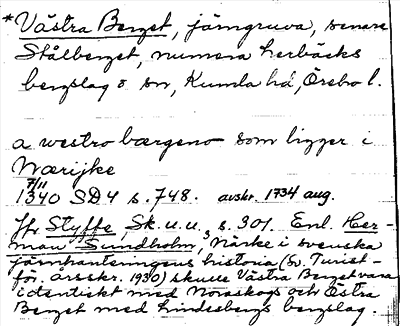 *Västra Berget, järngruva, senare
Stålberget, numera herbäcks
bergslag o sn, Kumla hd, Örebro l.
a westro bærgeno som ligger i
Wærijke
7/11
1340 SD4 s. 748. avskr. 1734 aug.
Jfr Styffe, Sk. u. u., s. 301. Enl. Her-
man Sundholm, Närke i svenska
järnhanteringens historia (Sv. Turist-
för. årsskr. 1930) skulle Västra Berget vara
identiskt med Noraskogs och Östra
Berget med Lindesbergs bergslag.